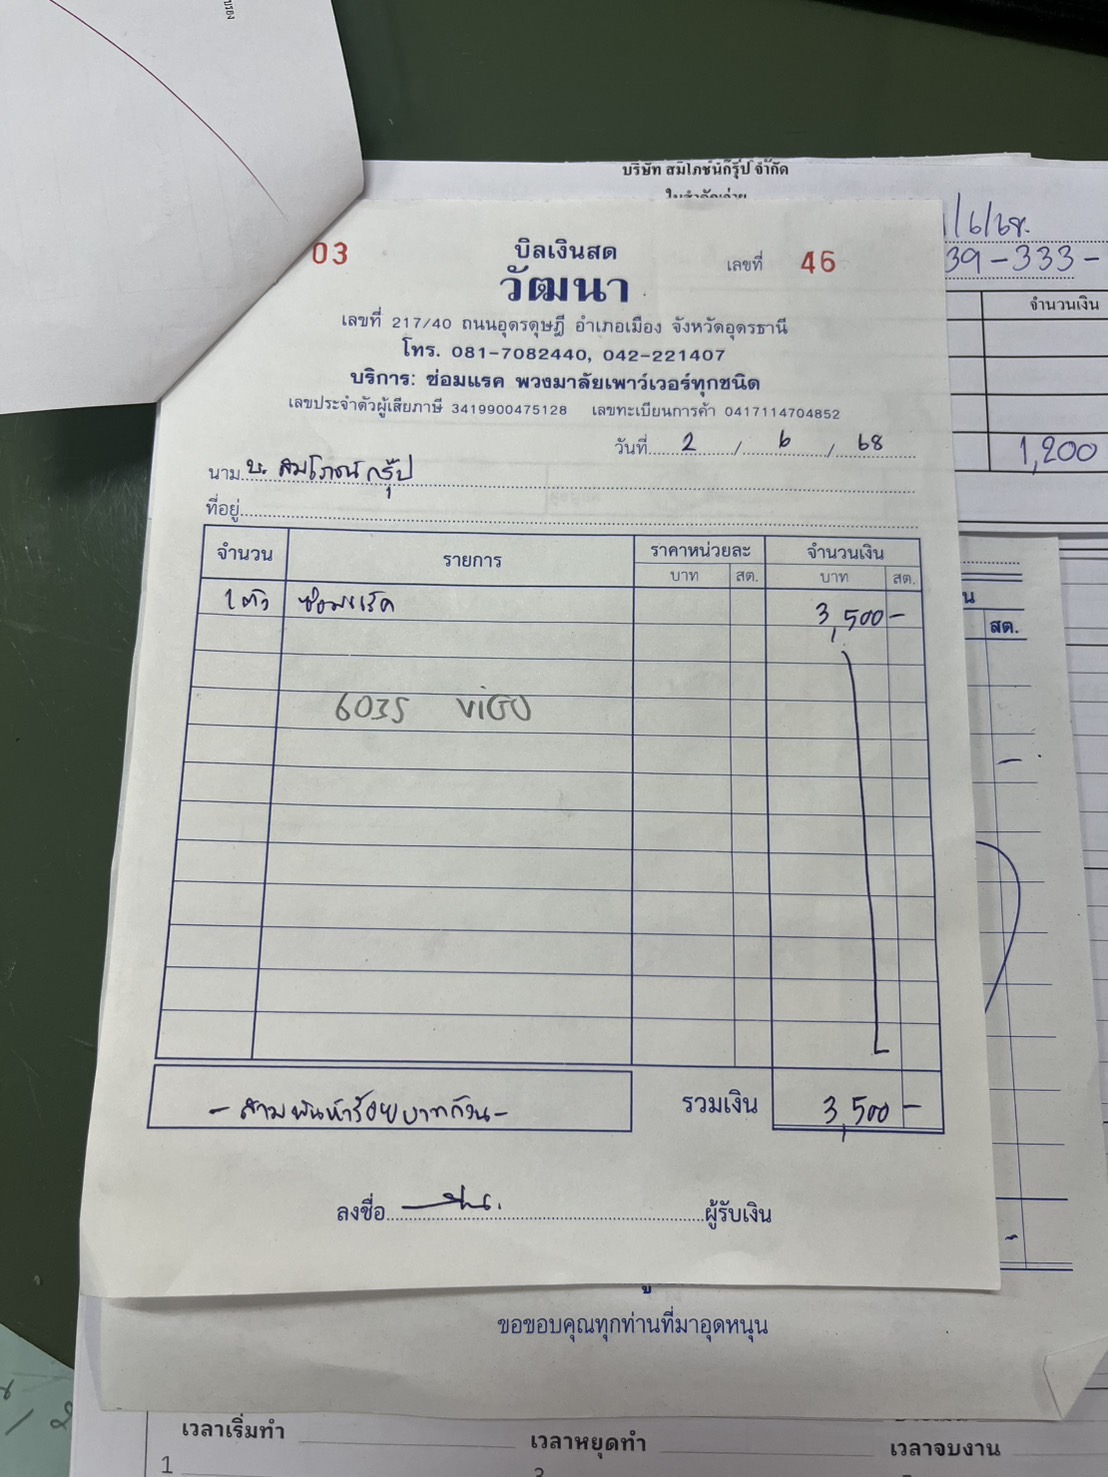 บริษัท สมโภชน์กรุ๊ป จำกัด
ใบสำคัญจ่าย
/6/68.
39-333-
จำนวนเงิน
1,200
03
บิลเงินสด
เลขที่ 46
วัฒนา
เลขที่ 217/40 ถนนอุดรดุษฎี อำเภอเมือง จังหวัดอุดรธานี
โทร. 081-7082440, 042-221407
บริการ: ซ่อมแรค พวงมาลัยเพาว์เวอร์ทุกชนิด
เลขประจำตัวผู้เสียภาษี 3419900475128 เลขทะเบียนการค้า 0417114704852
วันที่ 2 / 6 / 68
นาม บ. สมโภชน์กรุ๊ป
ที่อยู่
จำนวน รายการ ราคาหน่วยละ จำนวนเงิน
บาท สต. บาท สต.
1 ตัว ซ่อมแร็ค 3,500 -
สต.
6035 VIGO
- สามพันห้าร้อยบาทถ้วน - รวมเงิน 3,500 -
ลงชื่อ ผู้รับเงิน
ขอขอบคุณทุกท่านที่มาอุดหนุน
เวลาเริ่มทำ เวลาหยุดทำ เวลาจบงาน
1